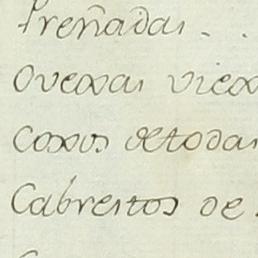 Preñadas . .
Ovexas viex
Coxos de todas
Cabrestos de